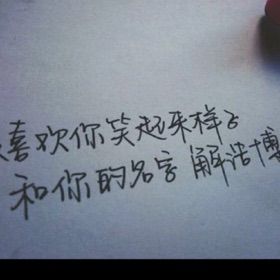 喜欢你笑起来样子
和你的名字 解浩博